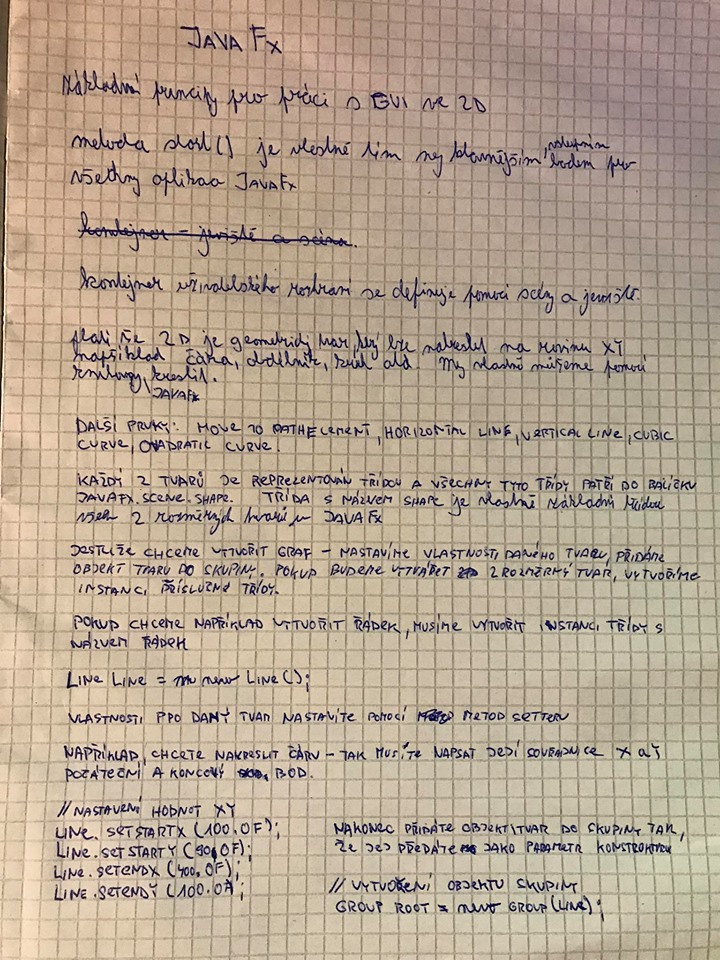 JAVA Fx
Základní principy pro práci s GUI ve 2D
metoda start() je vlastně tím nejhlavnějším vstupním bodem pro
všechny aplikace JAVAFx
kontejner – jeviště a scéna.
kontejner uživatelského rozhraní se definuje pomocí scény a jeviště.
platí že 2D je geometrický tvar, jež lze nakreslit na rovinu XY
například čára, obdélník, kruh atd. My vlastně můžeme pomocí
knihovny kreslit.
JAVAFx
DALŠÍ PRVKY: MOVE TO PATHELEMENT, HORIZONTAL LINE, VERTICAL LINE, CUBIC
CURVE, QUADRATIC CURVE.
KAŽDÝ Z TVARŮ JE REPREZENTOVÁN TŘÍDOU A VŠECHNY TYTO TŘÍDY PATŘÍ DO BALÍČKU
JAVAFX.SCENE.SHAPE. TŘÍDA S NÁZVEM SHAPE je vlastně základní třídou
všech 2 rozměrných tvarů v JAVAFx
JESTLIŽE CHCEME VYTVOŘIT GRAF – NASTAVÍME VLASTNOSTI DANÉHO TVARU, PŘIDÁME
OBJEKT TVARU DO SKUPINY. POKUD BUDEME VYTVÁŘET 2 ROZMĚRNÝ TVAR, VYTVOŘÍME
INSTANCI PŘÍSLUŠNÉ TŘÍDY.
POKUD CHCEME NAPŘÍKLAD VYTVOŘIT ŘÁDEK, MUSÍME VYTVOŘIT INSTANCI TŘÍDY S
NÁZVEM ŘÁDEK
LINE LINE = new LINE();
VLASTNOSTI PRO DANÝ TVAR NASTAVÍTE POMOCÍ METOD SETTERU
NAPŘÍKLAD, CHCETE NAKRESLIT ČÁRU – TAK MUSÍTE NAPSAT JEJÍ SOUŘADNICE X a Y
POČÁTEČNÍ A KONCOVÝ BOD.
// NASTAVENÍ HODNOT XY
LINE.SETSTARTX (100.0F);
LINE.SETSTARTY (90.0F);
LINE.SETENDX (400.0F);
LINE.SETENDY (100.0F);
NAKONEC PŘIDÁTE OBJEKT\TVAR DO SKUPINY TAK,
ŽE JEJ PŘEDÁTE JAKO PARAMETR KONSTRUKTORU
// VYTVOŘENÍ OBJEKTU SKUPINY
GROUP ROOT = new GROUP(LINE);